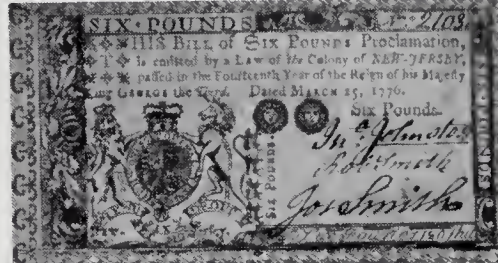 SIX·POUNDS No. 2108
THIS BILL of SIX POUNDS Proclamation,
is emitted by a LAW of the Colony of NEW-JERSEY,
passed in the Fourteenth Year of the Reign of his Majesty
King GEORGE the Third. Dated MARCH 25, 1776.
Six Pounds.
Jno. Johnston
Robt Smith
Jos Smith
SIX POUNDS.